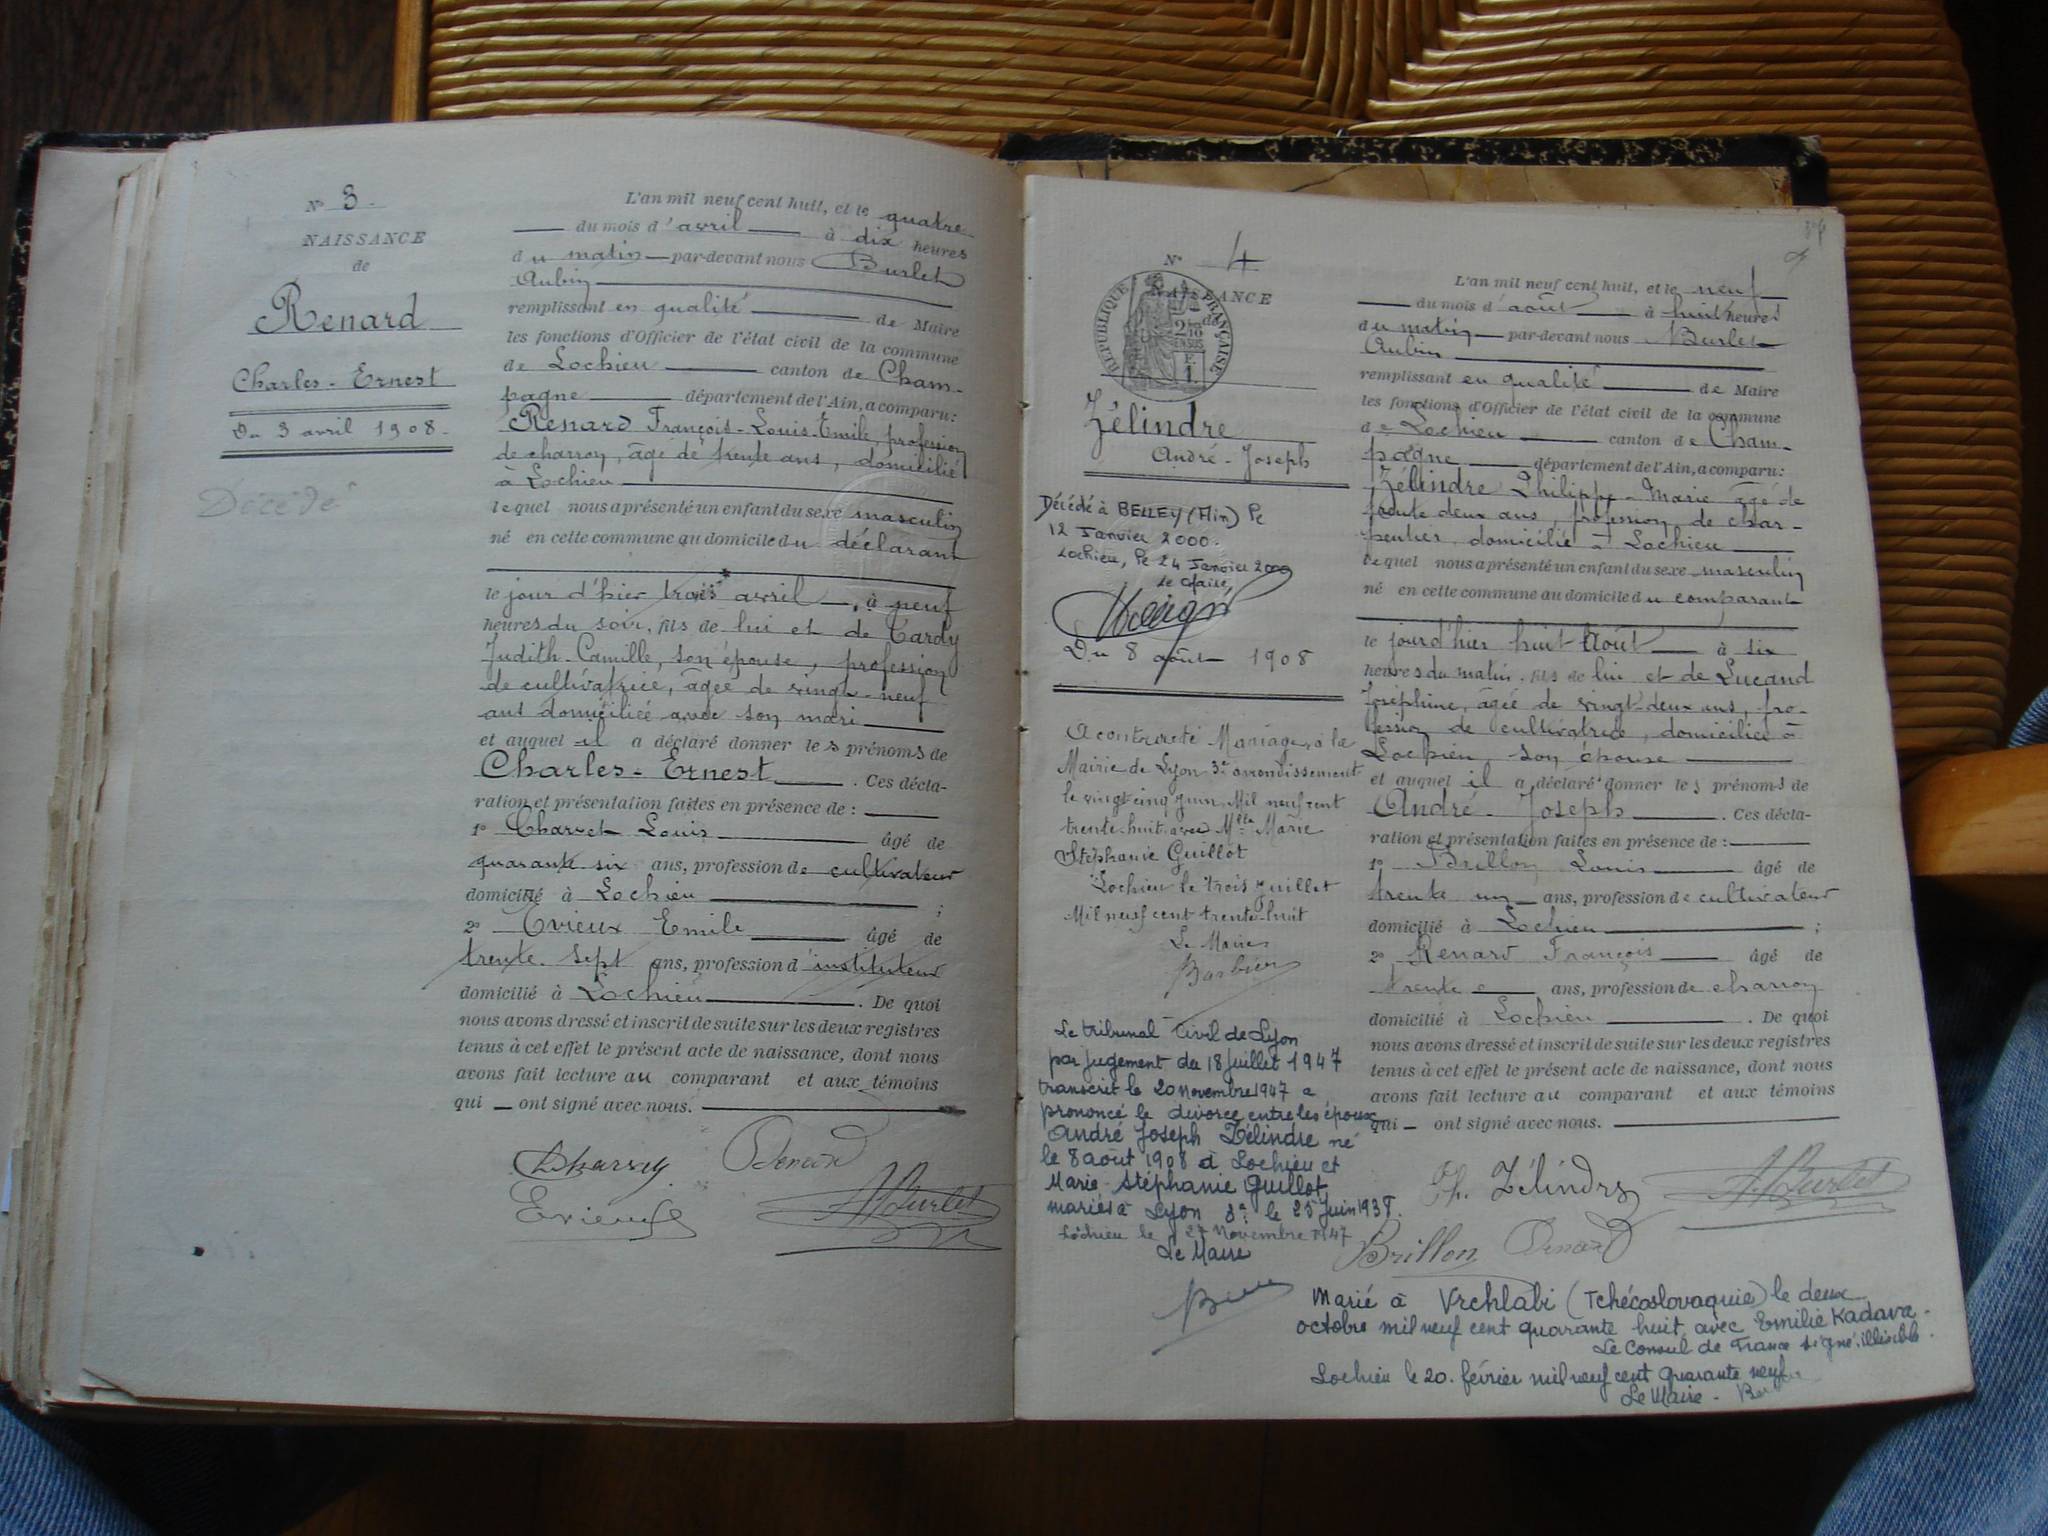 N° 3
NAISSANCE
de
Renard
Charles-Ernest
Du 3 avril 1908.
Décédé
L'an mil neuf cent huit, et le quatre
du mois d'avril à dix heures
du matin par-devant nous Burlet
Aubin
remplissant en qualité de Maire
les fonctions d'Officier de l'état civil de la commune
de Lochieu canton de Cham-
pagne département de l'Ain, a comparu:
Renard François-Louis-Emile, profession
de charron, âgé de trente ans, domicilié
à Lochieu
lequel nous a présenté un enfant du sexe masculin
né en cette commune au domicile du déclarant
le jour d'hier trois avril, à neuf
heures du soir, fils de lui et de Tardy
Judith-Camille, son épouse, profession
de cultivatrice, âgée de vingt-neuf
ans domiciliée avec son mari
et auquel il a déclaré donner les prénoms de
Charles-Ernest. Ces décla-
ration et présentation faites en présence de :
1° Charvet Louis âgé de
quarante six ans, profession de cultivateur
domicilié à Lochieu ;
2° Evieux Emile âgé de
trente-sept ans, profession d'instituteur
domicilié à Lochieu. De quoi
nous avons dressé et inscrit de suite sur les deux registres
tenus à cet effet le présent acte de naissance, dont nous
avons fait lecture au comparant et aux témoins
qui ont signé avec nous.
Charvet Renard
Evieux A. Burlet
N° 4
NAISSANCE
de
REPUBLIQUE FRANÇAISE
Zélindre
André-Joseph
Décédé à BELLEY (Ain) le
12 Janvier 2000.
Lochieu, le 24 Janvier 2000
Le Maire,
Du 8 août 1908
A contracté Mariage, à la
Mairie de Lyon 3e arrondissement
le vingt cinq Juin Mil neuf cent
trente-huit avec Mlle Marie
Stéphanie Guillot
Lochieu le trois Juillet
Mil neuf cent trente-huit
Le Maire
Barbier
Le tribunal Civil de Lyon
par jugement du 18 Juillet 1947
transcrit le 20 novembre 1947 a
prononcé le divorce entre les époux
André Joseph Zélindre né
le 8 août 1908 à Lochieu et
Marie-Stéphanie Guillot
mariés à Lyon 3e le 25 Juin 1938.
Lochieu le 27 Novembre 1947
Le Maire
L'an mil neuf cent huit, et le neuf
du mois d'août à huit heures
du matin par-devant nous Burlet
Aubin
remplissant en qualité de Maire
les fonctions d'Officier de l'état civil de la commune
de Lochieu canton de Cham-
pagne département de l'Ain, a comparu:
Zélindre Philippe-Marie âgé de
trente deux ans, profession de char-
pentier domicilié à Lochieu
lequel nous a présenté un enfant du sexe masculin
né en cette commune au domicile du comparant
le jour d'hier huit Août à six
heures du matin, fils de lui et de Lucand
Joséphine, âgée de vingt-deux ans, pro-
fession de cultivatrice, domiciliée à
Lochieu, son épouse
et auquel il a déclaré donner les prénoms de
André-Joseph. Ces décla-
ration et présentation faites en présence de :
1° Brillon Louis âgé de
trente un ans, profession de cultivateur
domicilié à Lochieu ;
2° Renard François âgé de
trente ans, profession de charron
domicilié à Lochieu. De quoi
nous avons dressé et inscrit de suite sur les deux registres
tenus à cet effet le présent acte de naissance, dont nous
avons fait lecture au comparant et aux témoins
qui ont signé avec nous.
Ph. Zélindre A. Burlet
Brillon Renard
Marié à Vrchlabi (Tchécoslovaquie) le deux
octobre mil neuf cent quarante huit avec Emilie Kadava.
Le Consul de France signé: illisible.
Lochieu le 20 février mil neuf cent quarante neuf
Le Maire -